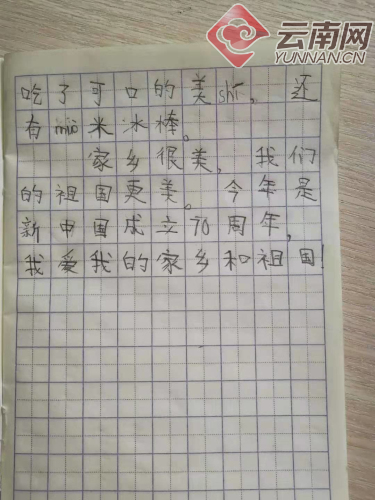 云南网
YUNNAN.CN
吃了可口的美shí，还
有nuò米冰棒。
家乡很美，我们
的祖国更美。今年是
新中国成立70周年，
我爱我的家乡和祖国！